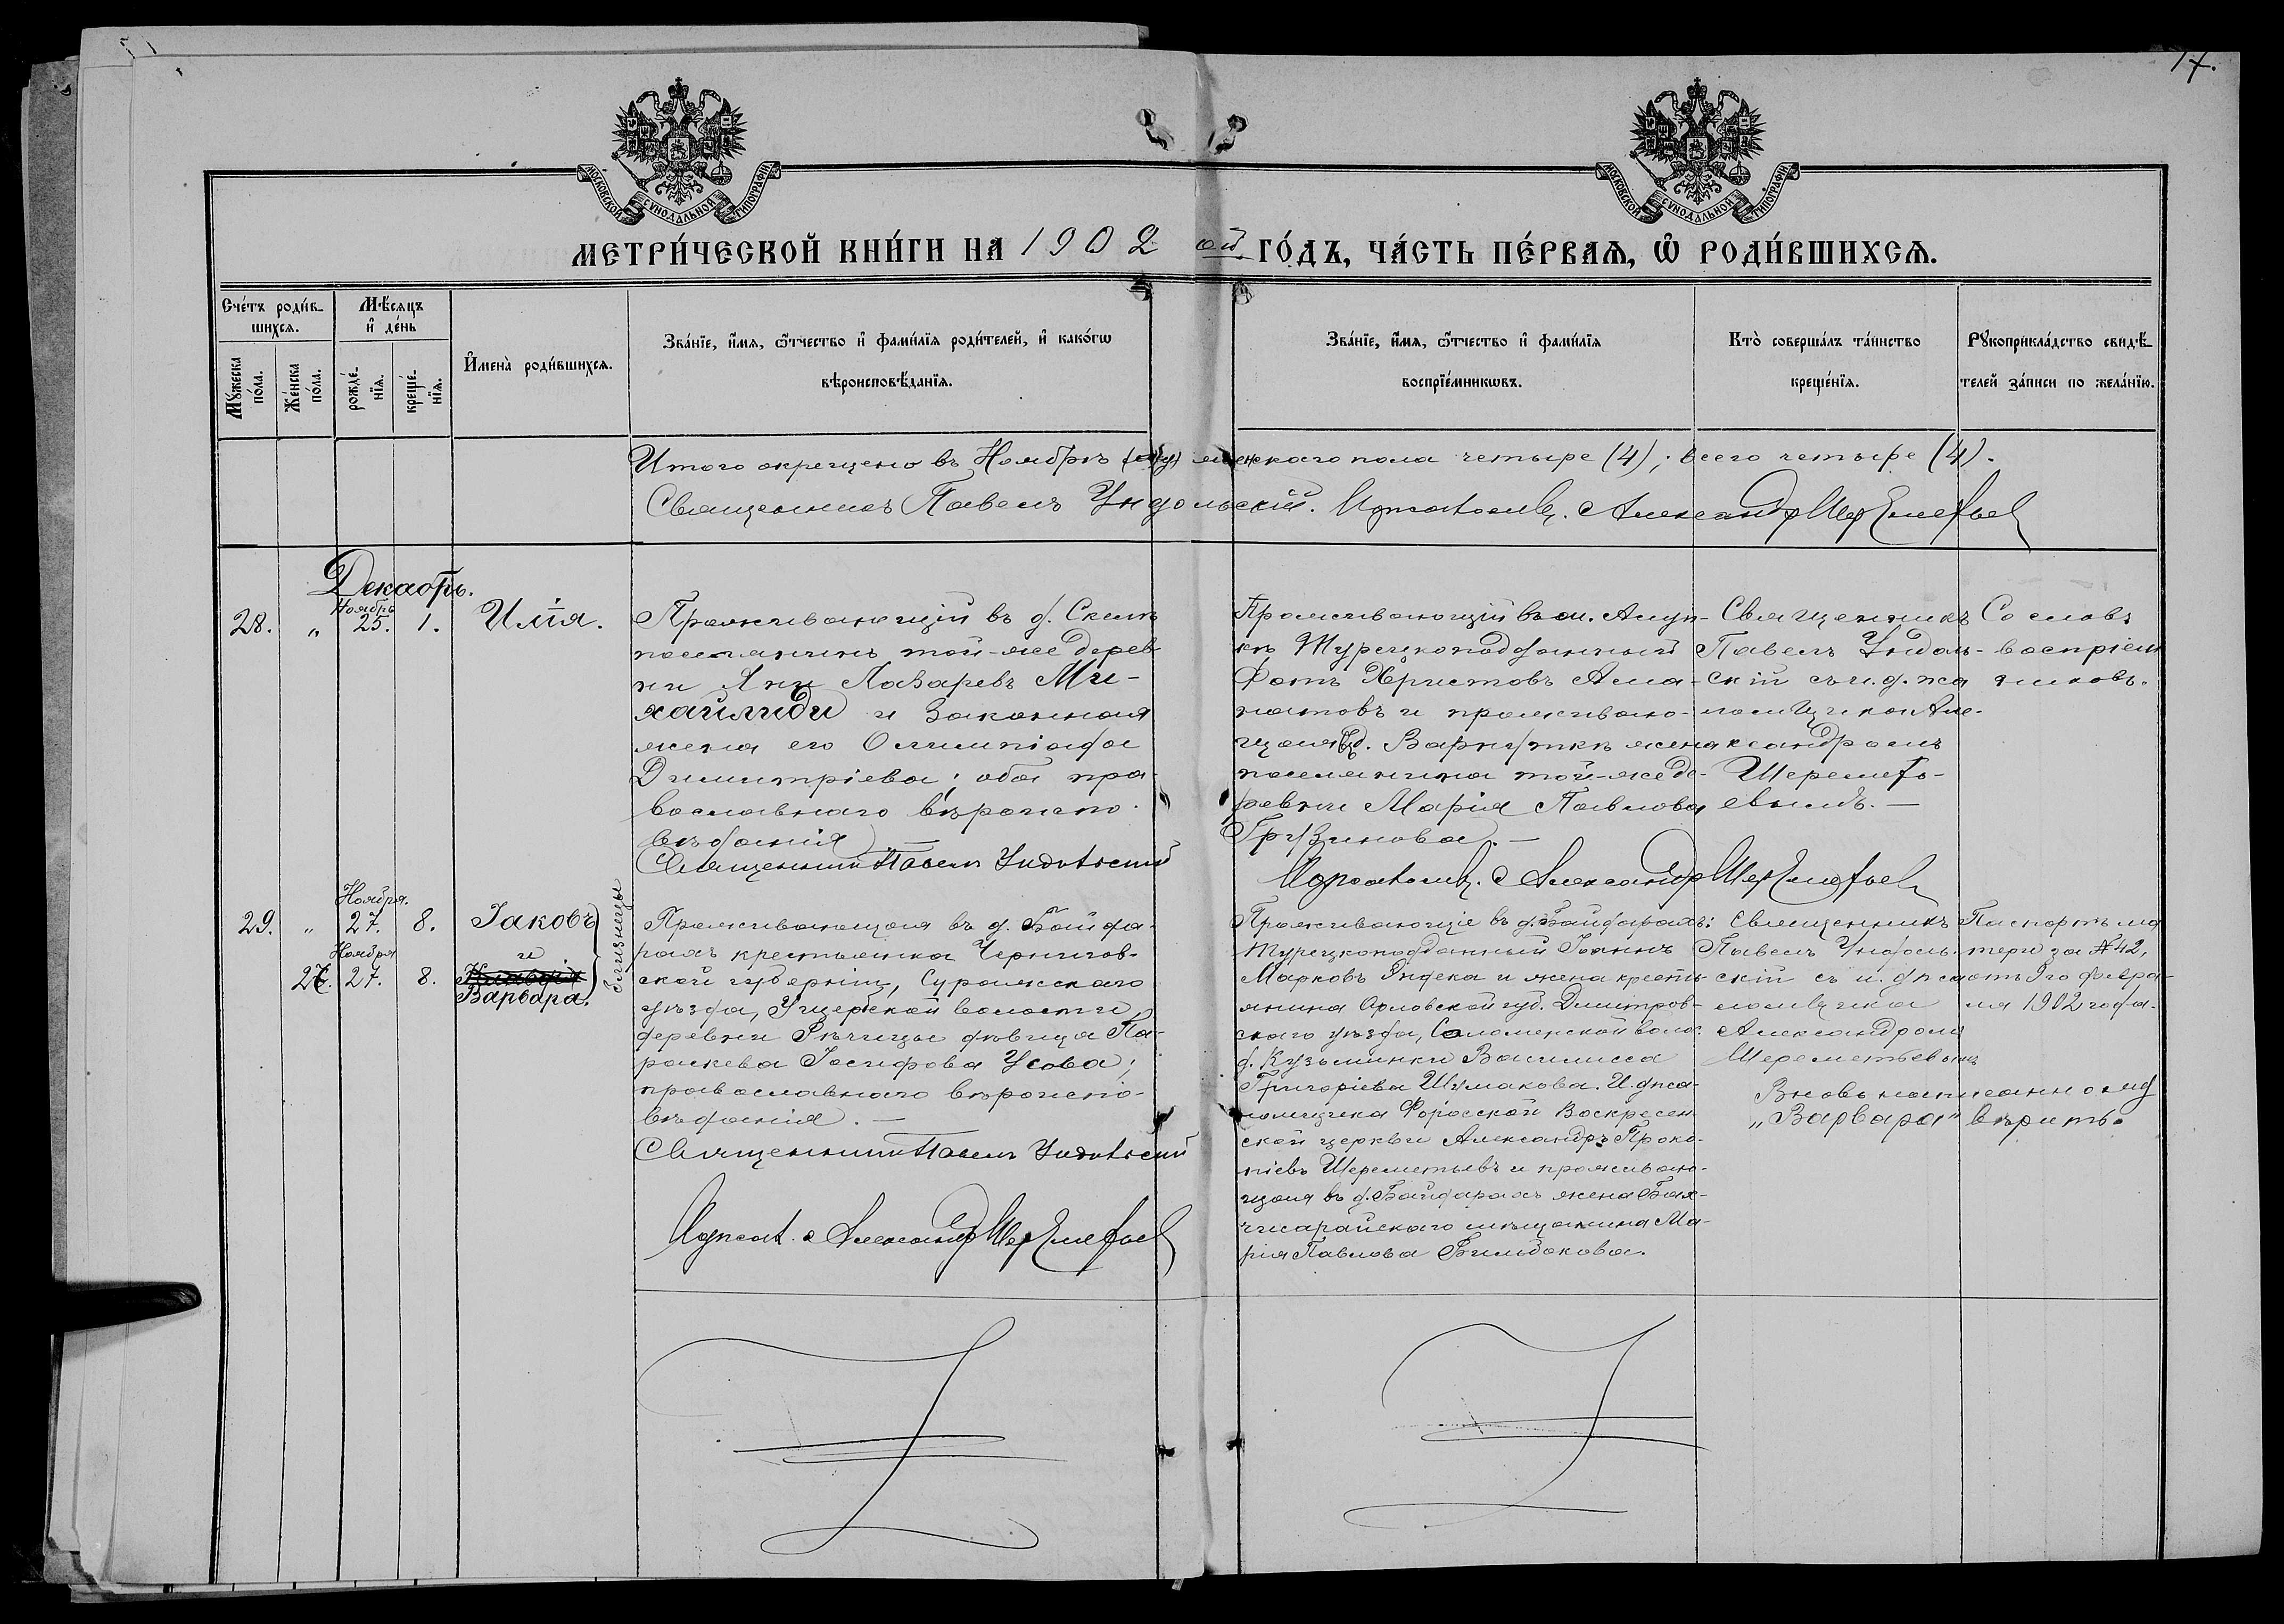 17.
МОСКОВСКОЙ СѴНОДАЛЬНОЙ ТИПОГРАФІИ
МОСКОВСКОЙ СѴНОДАЛЬНОЙ ТИПОГРАФІИ
МЕТРИ́ЧЕСКОЙ КНИ́ГИ НА 1902 ой ГО́ДЪ, ЧА́СТЬ ПЕ́РВАѦ, Ѿ РОДИ́ВШИХСѦ.
Сче́тъ роди́в-
шихся.
Му́жеска по́ла.
Же́нска по́ла.
Мѣ́сяцъ
и҆ де́нь
рожде́-
нїя.
креще́-
нїя.
И҆мена̀ роди́вшихся.
Зва́нїе, и҆́мя, ѻ҆́тчество и҆ фами́лїя роди́телей, и҆ како́гѡ
вѣроисповѣ́данїя.
Зва́нїе, и҆́мя, ѻ҆́тчество и҆ фами́лїя
воспрїе́мникѡвъ.
Кто̀ соверша́лъ та́инство
креще́нїя.
Рꙋкоприкла́дство свидѣ́-
телей за́писи по жела́нїю.
Итого окрещено въ Ноябрѣ мужскаго пола четыре (4); всего четыре (4).
Священникъ Павелъ Ундольскій. Александръ Шереметьев
Декабрь.
28. " Ноября 25. 1. Илія.
Проживающій въ д. Скеля
поселянинъ той-же дерев-
ни Яни Лазаревъ Ми-
хайлиди и законная
жена его Олимпіада
Димитріева; оба пра-
вославнаго вѣроиспо-
вѣданія. —
Священникъ Павелъ Ундольский
Проживающій въ им. Алуп-
кѣ Турецкоподданный
Фотъ Христовъ Алма-
матовъ и проживаю-
щая въ д. Варнуткѣ жена
поселянина той-же де-
ревни Марія Павлова
Грузинова. —
Священникъ
Павелъ Ундоль-
скій съ и. д. пса-
ломщика Але-
ксандромъ
Шереметь-
евымъ. —
Со словъ
воспріем-
никовъ.
Александръ Шереметьев
29. " Ноября. 27. 8. Іаковъ
и
26. Ноября 27. 8.
Варвара.
близнецы
Проживающая въ д. Байда-
рахъ крестьянка Чернигов-
ской губерніи, Суражскаго
уѣзда, Ущербской волости
деревни Рѣчицы дѣвица Па-
раскева Іосифова Усова;
православнаго вѣроиспо-
вѣданія. —
Священникъ Павелъ Ундольский
Александръ Шереметьев
Проживающіе въ д. Байдарахъ:
Турецкоподданный Іоаннъ
Марковъ Яндека и жена кресть-
янина Орловской губ. Димитров-
скаго уѣзда, Соломенской воло.
д. Кузьминки Василисса
Григоріева Шумакова. И. д. пса-
ломщика Форосской Воскресен-
ской церкви Александръ Проко-
піевъ Шереметьевъ и проживаю-
щая въ д. Байдарахъ жена Бах-
чисарайскаго мѣщанина Ма-
рія Павлова Бильдакова.
Священникъ
Павелъ Ундоль-
скій съ и. д. пса-
ломщика
Александромъ
Шереметьевымъ
Паспортъ ма-
тери за № 42,
отъ 9го февра-
ля 1902 года.
Вновь написанному
„Варвара" вѣрить.